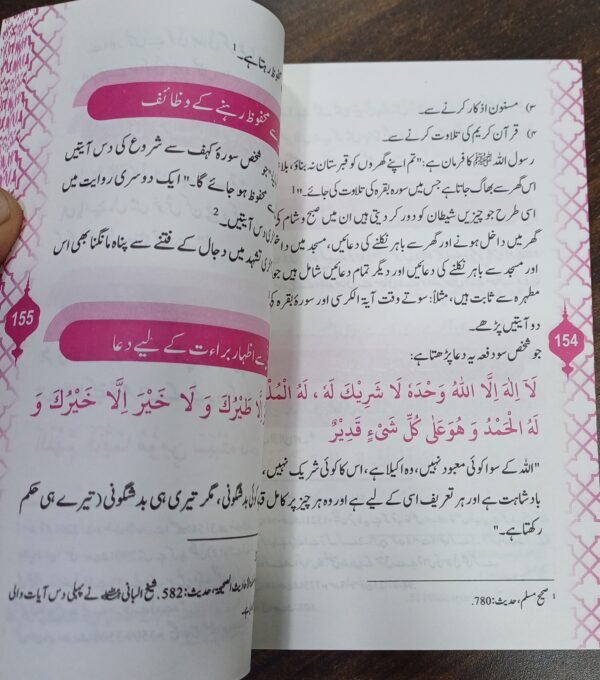 ۳) مسنون اذکار کرنے سے۔
۴) قرآن کریم کی تلاوت کرنے سے۔
رسول اللہ ﷺ کا فرمان ہے: "تم اپنے گھروں کو قبرستان نہ بناؤ، بلا
اس گھر سے بھاگ جاتا ہے جس میں سورہ بقرہ کی تلاوت کی جائے۔"1
اسی طرح جو چیزیں شیطان کو دور کر دیتی ہیں ان میں صبح و شام کی
گھر میں داخل ہونے اور گھر سے باہر نکلنے کی دعائیں، مسجد میں دا
اور مسجد سے باہر نکلنے کی دعائیں اور دیگر تمام دعائیں شامل ہیں جو
مطہرہ سے ثابت ہیں، مثلاً: سوتے وقت آیۃ الکرسی اور سورۃ بقرہ کی
دو آیتیں پڑھے۔
جو شخص سو دفعہ یہ دعا پڑھتا ہے:
لَآ اِلٰهَ اِلَّا اللهُ وَحْدَهٗ لَا شَرِيْكَ لَهٗ ، لَهُ الْمُلْ
لَهُ الْحَمْدُ وَ هُوَ عَلٰى كُلِّ شَيْءٍ قَدِيْرٌ
"اللہ کے سوا کوئی معبود نہیں، وہ اکیلا ہے، اس کا کوئی شریک نہیں،
بادشاہت ہے اور ہر تعریف اسی کے لیے ہے اور وہ ہر چیز پر کامل قد
رکھتا ہے۔"
1 صحیح مسلم، حدیث: 780.
154
محفوظ رہتا ہے۔1
محفوظ رہنے کے وظائف
"جو شخص سورۂ کہف سے شروع کی دس آیتیں
سے محفوظ ہو جائے گا۔" ایک دوسری روایت میں
دس آیتیں۔2
تشہد میں دجال کے فتنے سے پناہ مانگنا بھی اس
سے اظہار براءت کے لیے دعا
اِلَّا طَيْرُكَ وَ لَا خَيْرَ اِلَّا خَيْرُكَ وَ
بدشگونی، مگر تیری ہی بدشگونی (تیرے ہی حکم
حدیث: 582. شیخ البانی نے پہلی دس آیات والی
155